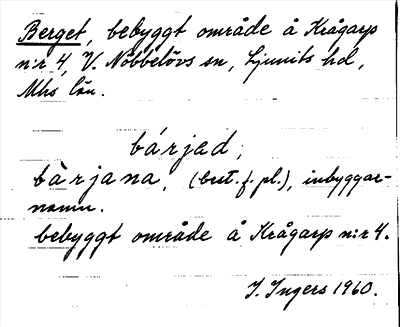 Berget, bebyggt område å Krågarp
n:r 4, V. Nöbbelövs sn, Ljunits hd,
Mhs län.
bárjed,
bàrjana, (best. f. pl.), inbyggar-
namn.
bebyggt område å Krågarp n:r 4.
I. Ingers 1960.